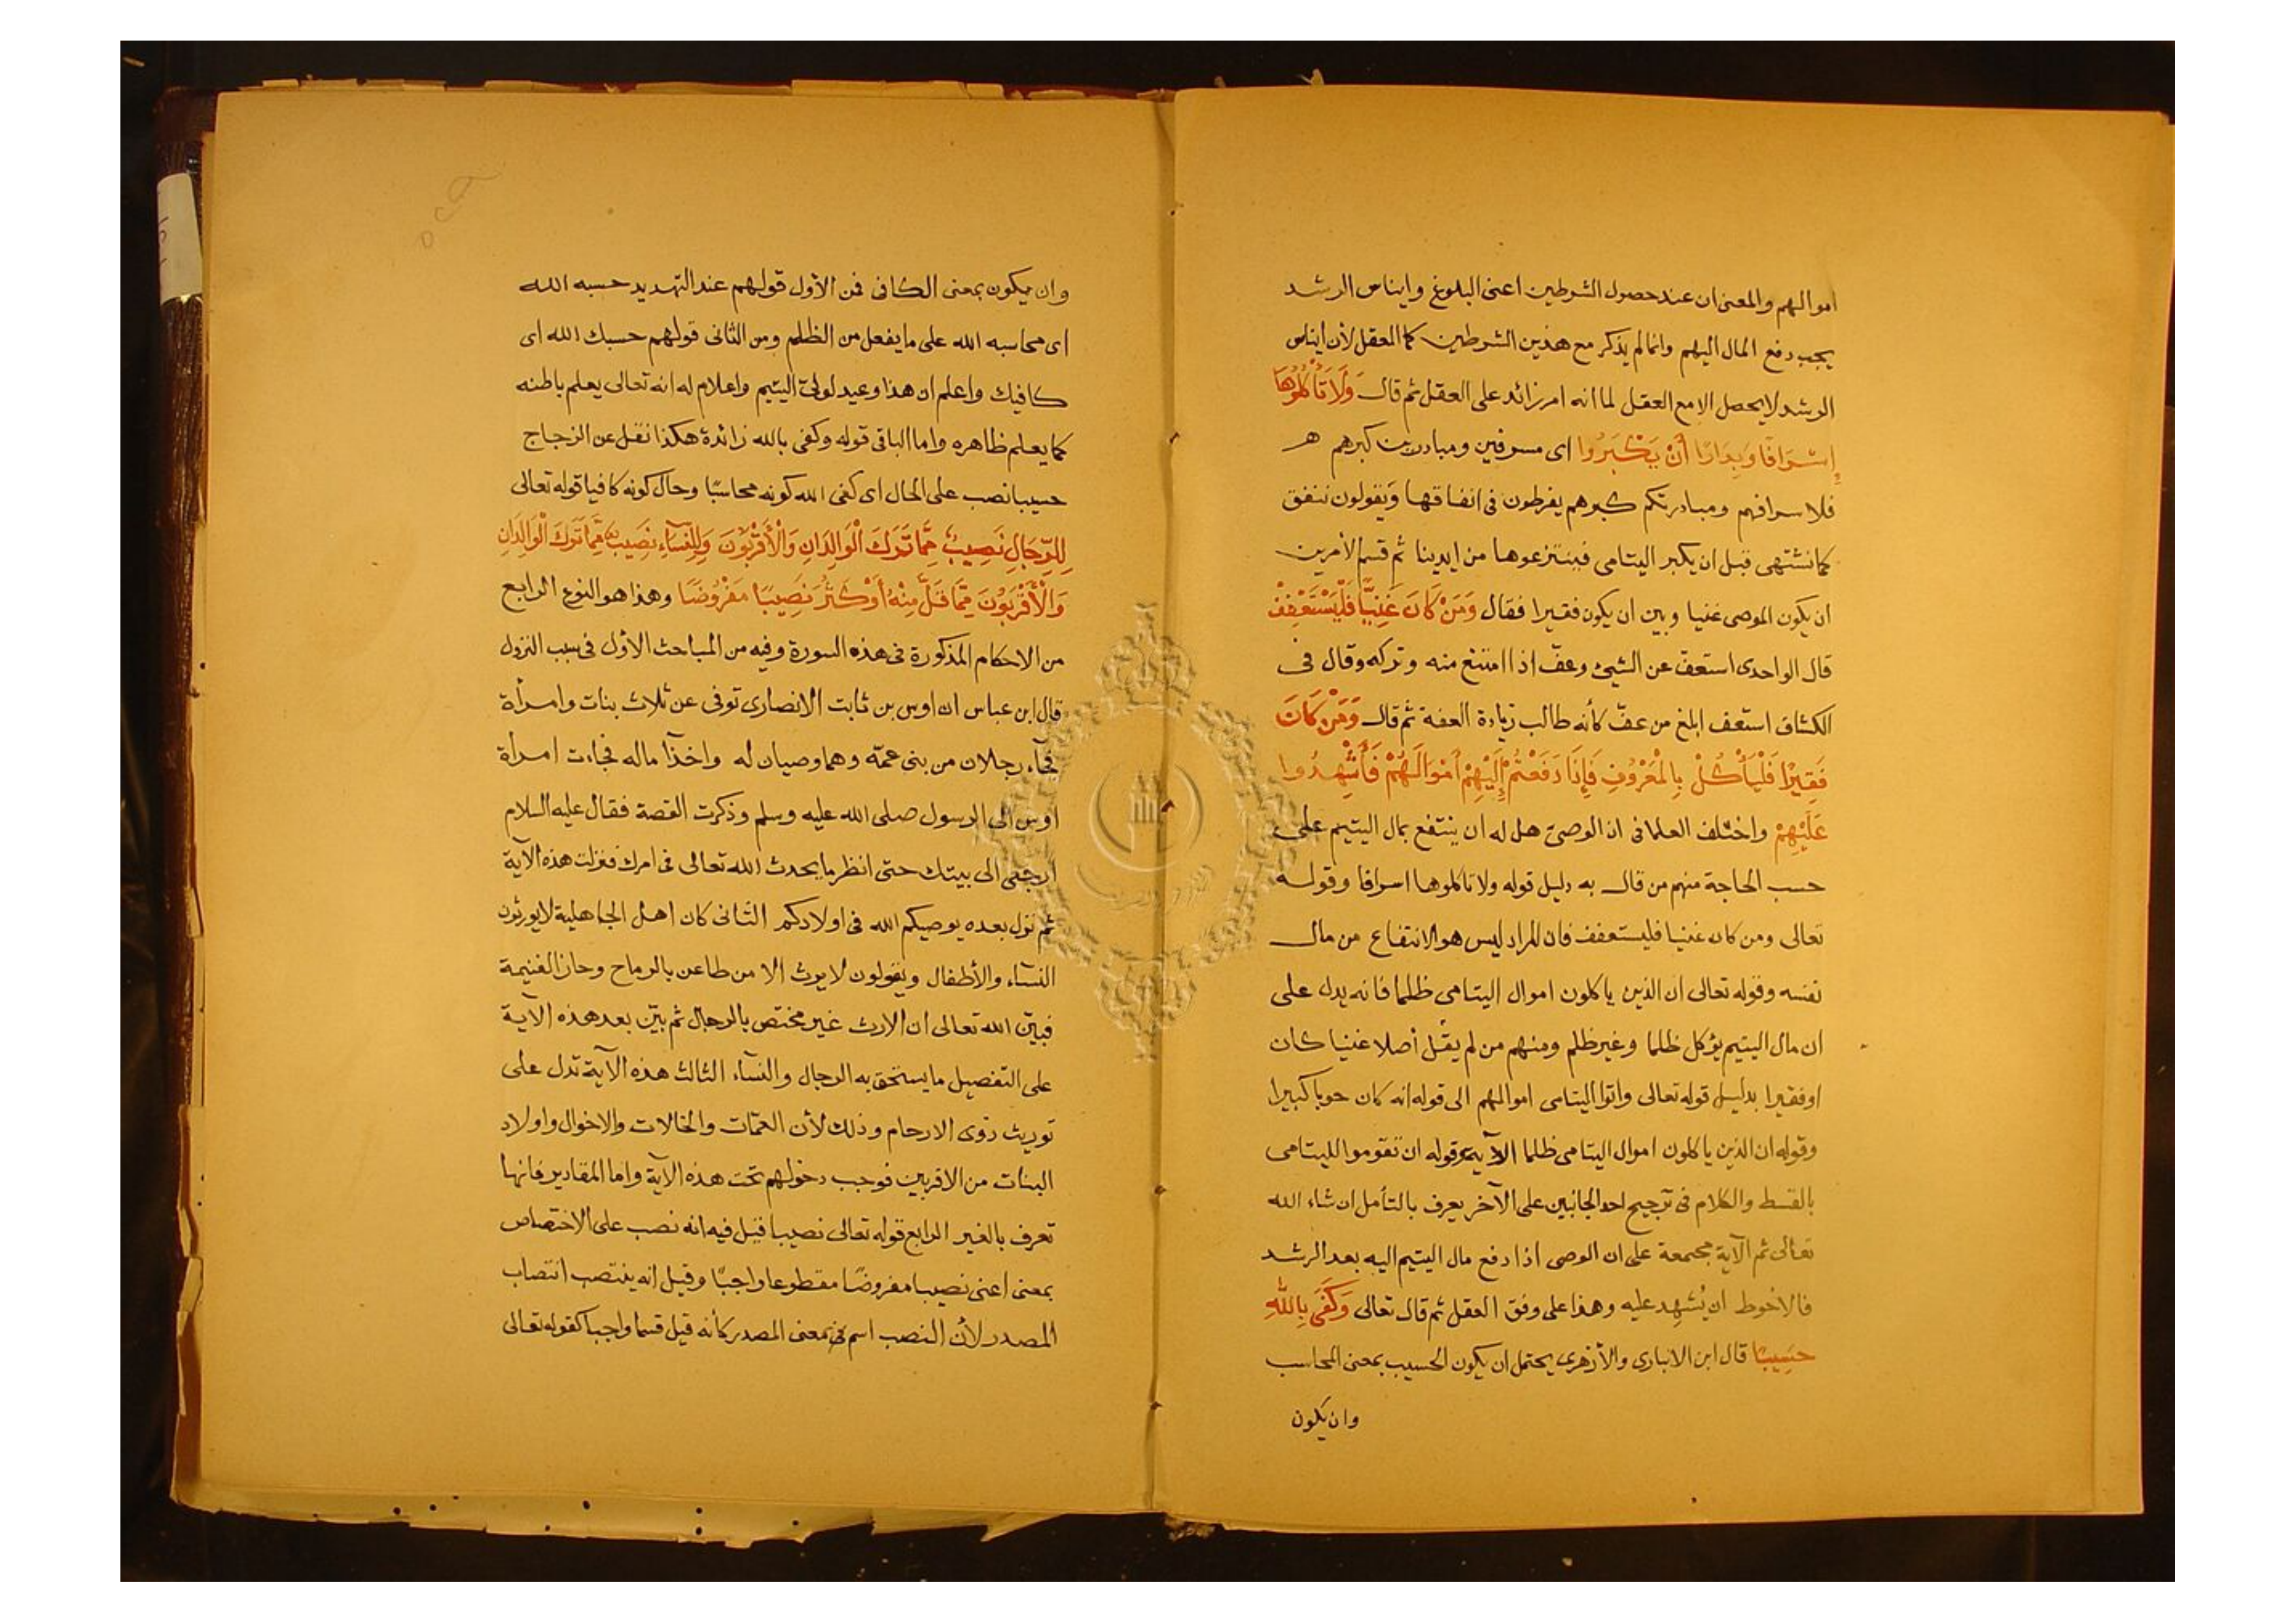 اموالهم والمعنى ان عند حصول الشرطين اعنى البلوغ وايناس الرشد
يجب دفع المال اليهم وانما لم يذكر مع هذين الشرطين كمال العقل لأن ايناس
الرشد لا يحصل الا مع العقل لما انه امر زائد على العقل ثم قال وَلَا تَأْكُلُوهَا
إِسْرَافًا وَبِدَارًا أَنْ يَكْبَرُوا اى مسرفين ومبادرين كبرهم هر
فلاسرافهم ومبادرتكم كبرهم يفرطون فى انفاقها ويقولون ننفق
كما نشتهى قبل ان يكبر اليتامى فينتزعوها من ايدينا ثم قسم الأمرين
ان يكون الموصى غنيا وبين ان يكون فقيرا فقال وَمَنْ كَانَ غَنِيًّا فَلْيَسْتَعْفِفْ
قال الواحدى استعفّ عن الشيئ وعفّ اذا امتنع منه وتركه وقال فى
الكشاف استعف ابلغ من عفّ كأنه طالب زيادة العفة ثم قال وَمَنْ كَانَ
فَقِيرًا فَلْيَأْكُلْ بِالْمَعْرُوفِ فَإِذَا دَفَعْتُمْ إِلَيْهِمْ أَمْوَالَهُمْ فَأَشْهِدُوا
عَلَيْهِمْ واختلف العلما فى ان الوصى هل له ان ينتفع بمال اليتيم على
حسب الحاجة منهم من قال به دليل قوله ولا تاكلوها اسرافا وقوله
تعالى ومن كان غنيا فليستعفف فان المراد ليس هو الانتفاع من مال
نفسه وقوله تعالى ان الذين ياكلون اموال اليتامى ظلما فانه يدل على
ان مال اليتيم يؤكل ظلما وغير ظلم ومنهم من لم يقل أصلا غنيا كان
او فقيرا بدليل قوله تعالى واتوا اليتامى اموالهم الى قوله انه كان حوبا كبيرا
وقوله ان الذين ياكلون اموال اليتامى ظلما الآية وقوله ان تقوموا لليتامى
بالقسط والكلام فى ترجيح احد الجانبين على الآخر يعرف بالتأمل ان شاء الله
تعالى ثم الآية مجتمعة على ان الوصى اذا دفع مال اليتيم اليه بعد الرشد
فالاحوط ان يُشهد عليه وهذا على وفق العقل ثم قال تعالى وَكَفَى بِاللَّهِ
حَسِيبًا قال ابن الانبارى والأزهرى يحتمل ان يكون الحسيب بمعنى المحاسب
وان يكون
وان يكون بمعنى الكافى فمن الأول قولهم عند التهديد حسبه الله
اى محاسبه الله على ما يفعل من الظلم ومن الثانى قولهم حسبك الله اى
كافيك واعلم ان هذا وعيد لولىّ اليتيم واعلام له انه تعالى يعلم باطنه
كما يعلم ظاهره واما الباقى قوله وكفى بالله زائدة هكذا نقل عن الزجاج
حسيبا نصب على الحال اى كفى الله كونه محاسبًا وحال كونه كافيا قوله تعالى
لِلرِّجَالِ نَصِيبٌ مِمَّا تَرَكَ الْوَالِدَانِ وَالْأَقْرَبُونَ وَلِلنِّسَاءِ نَصِيبٌ مِمَّا تَرَكَ الْوَالِدَانِ
وَالْأَقْرَبُونَ مِمَّا قَلَّ مِنْهُ أَوْ كَثُرَ نَصِيبًا مَفْرُوضًا وهذا هو النوع الرابع
من الاحكام المذكورة فى هذه السورة وفيه من المباحث الأول فى سبب النزول
قال ابن عباس ان اوس بن ثابت الانصارى توفى عن ثلاث بنات وامرأة
فجآء رجلان من بنى عمّه وهما وصيان له واخذا ماله فجاءت امرأة
أوس الى الرسول صلى الله عليه وسلم وذكرت القصة فقال عليه السلام
ارجعى الى بيتك حتى انظر ما يحدث الله تعالى فى امرك فنزلت هذه الآية
ثم نزل بعده يوصيكم الله فى اولادكم الثانى كان اهل الجاهلية لا يورثون
النسآء والأطفال ويقولون لا يرث الا من طاعن بالرماح وحاز الغنيمة
فبيّن الله تعالى ان الارث غير مختص بالرجال ثم بيّن بعد هذه الآية
على التفصيل ما يستحق به الرجال والنسآء الثالث هذه الآية تدل على
توريث ذوى الارحام وذلك لأن العمّات والخالات والاخوال واولاد
البنات من الاقربين فوجب دخولهم تحت هذه الآية واما المقادير فانها
تعرف بالغير الرابع قوله تعالى نصيبا قيل فيه انه نصب على الاختصاص
بمعنى اعنى نصيبا مفروضًا مقطوعا واجبًا وقيل انه ينتصب انتصاب
المصدر لأن النصب اسم فى معنى المصدر كأنه قيل قسما واجبا كقوله تعالى